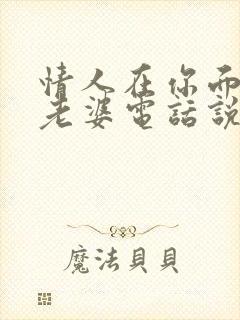 情人在你而
老婆電話說
魔法貝貝